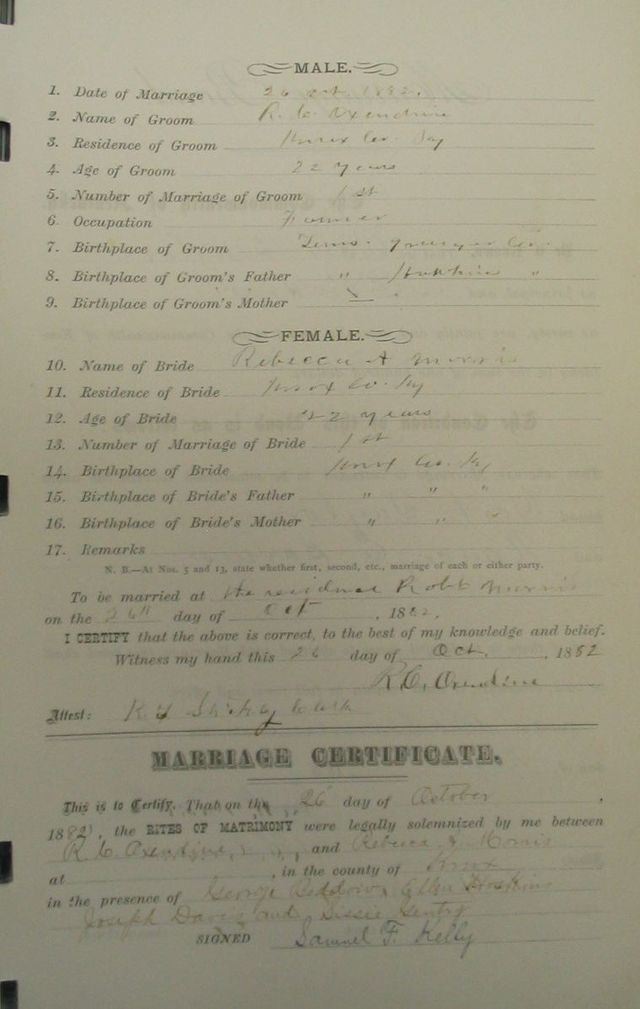 MALE.
1. Date of Marriage 26 Oct 1882.
2. Name of Groom R. C. Oxendine
3. Residence of Groom Knox Co. Ky
4. Age of Groom 22 years
5. Number of Marriage of Groom 1st
6. Occupation Farmer
7. Birthplace of Groom Tenn. Co.
8. Birthplace of Groom's Father " Hawkins "
9. Birthplace of Groom's Mother
FEMALE.
10. Name of Bride Rebecca A Morris
11. Residence of Bride Knox Co. Ky
12. Age of Bride 22 years
13. Number of Marriage of Bride 1st
14. Birthplace of Bride Knox Co. Ky
15. Birthplace of Bride's Father " " "
16. Birthplace of Bride's Mother " " "
17. Remarks
N. B.—At Nos. 5 and 13, state whether first, second, etc., marriage of each or either party.
To be married at the Robt Morris
on the 26th day of Oct, 1882.
I CERTIFY that the above is correct, to the best of my knowledge and belief.
Witness my hand this 26 day of Oct., 1882
R. C. Oxendine
Attest: Clerk
MARRIAGE CERTIFICATE.
This is to Certify, That on the 26 day of October
1882, the RITES OF MATRIMONY were legally solemnized by me between
R. C. Oxendine and Rebecca Morris
at , in the county of Knox
in the presence of George Allen Hoskins
Joseph Davis and Gentry
SIGNED Samuel F. Kelly